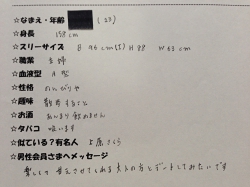 ☆なまえ・年齢 (23)
☆身長 158cm
☆スリーサイズ B 96cm(G) H 88 W 63cm
☆職業 主婦
☆血液型 A型
☆性格 のんびりや
☆趣味 散歩すること
☆お酒 あんまり飲めません
☆タバコ 吸います
☆似ている?有名人 上原さくら
☆男性会員さまへメッセージ
楽しくて 甘えさせてくれる大人の方とデートしてみたいです